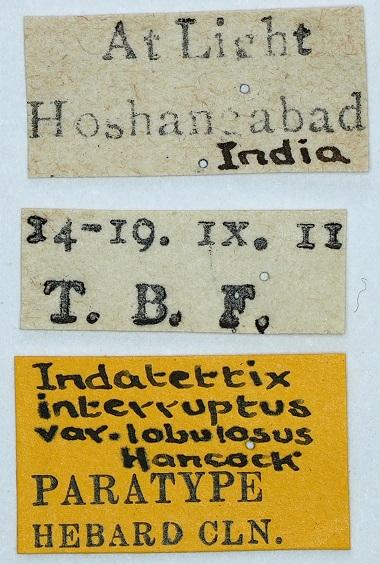 At Light
Hoshangabad
India
14-19. IX. 11
T. B. F.
Indatettix
interruptus
var. lobulosus
Hancock
PARATYPE
HEBARD CLN.